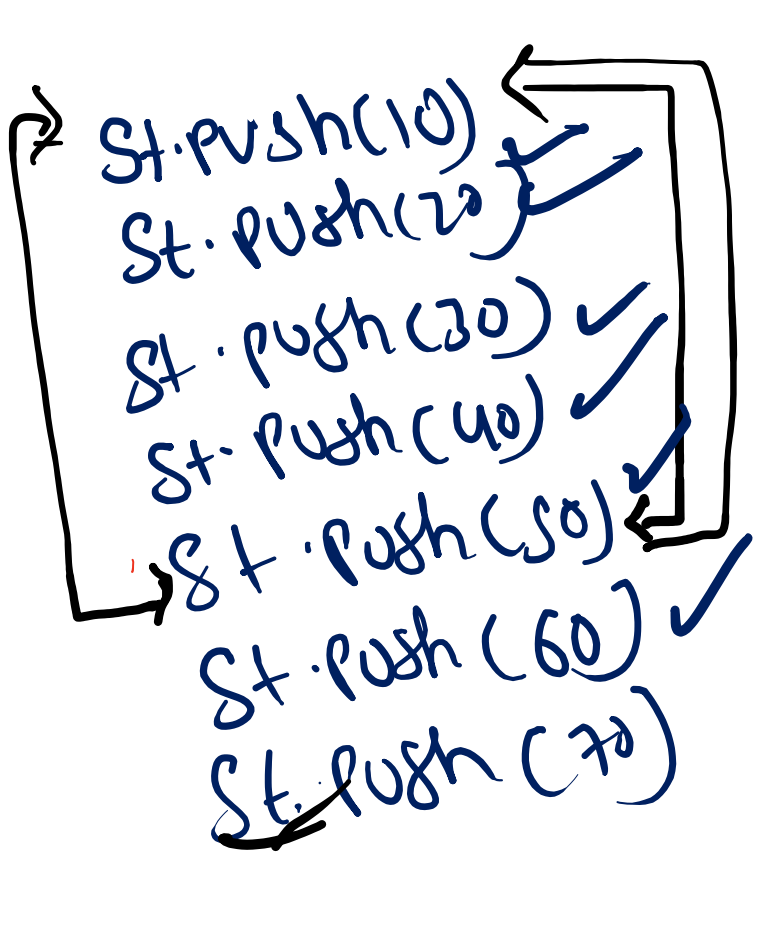 St.push(10)
St.push(20)
St.push(30)
St.push(40)
St.push(50)
St.push(60)
St.push(70)